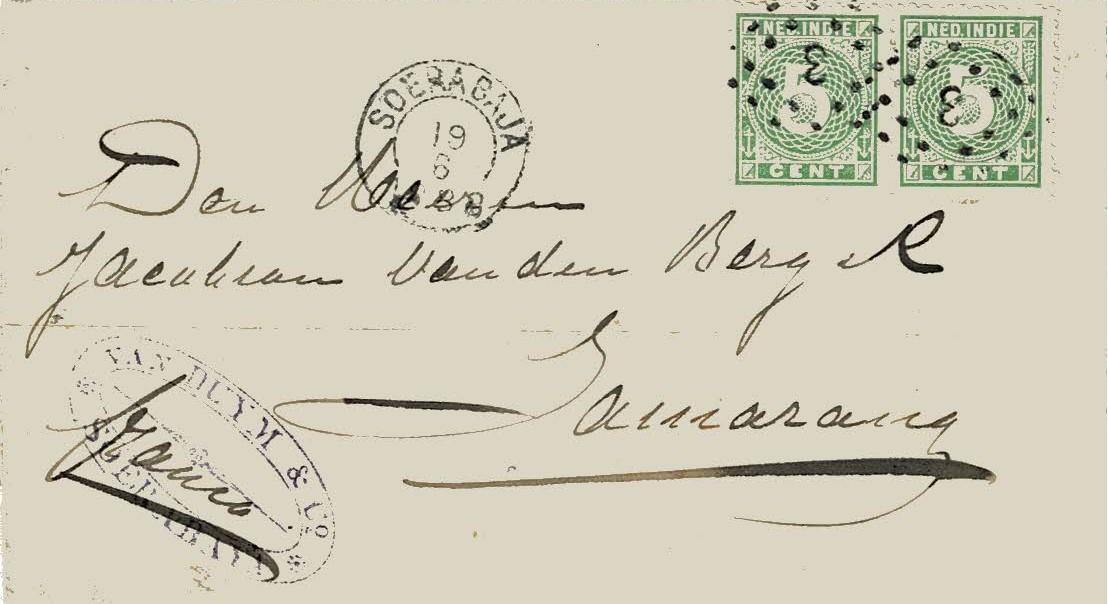 NED. INDIE NED. INDIE
5 5
3 3
CENT CENT
SOERABAJA
19
6
1888
Den Heeren
Jacobson van den Berg &
Samarang
Franco
VAN DUYM & Co.
SOERABAYA